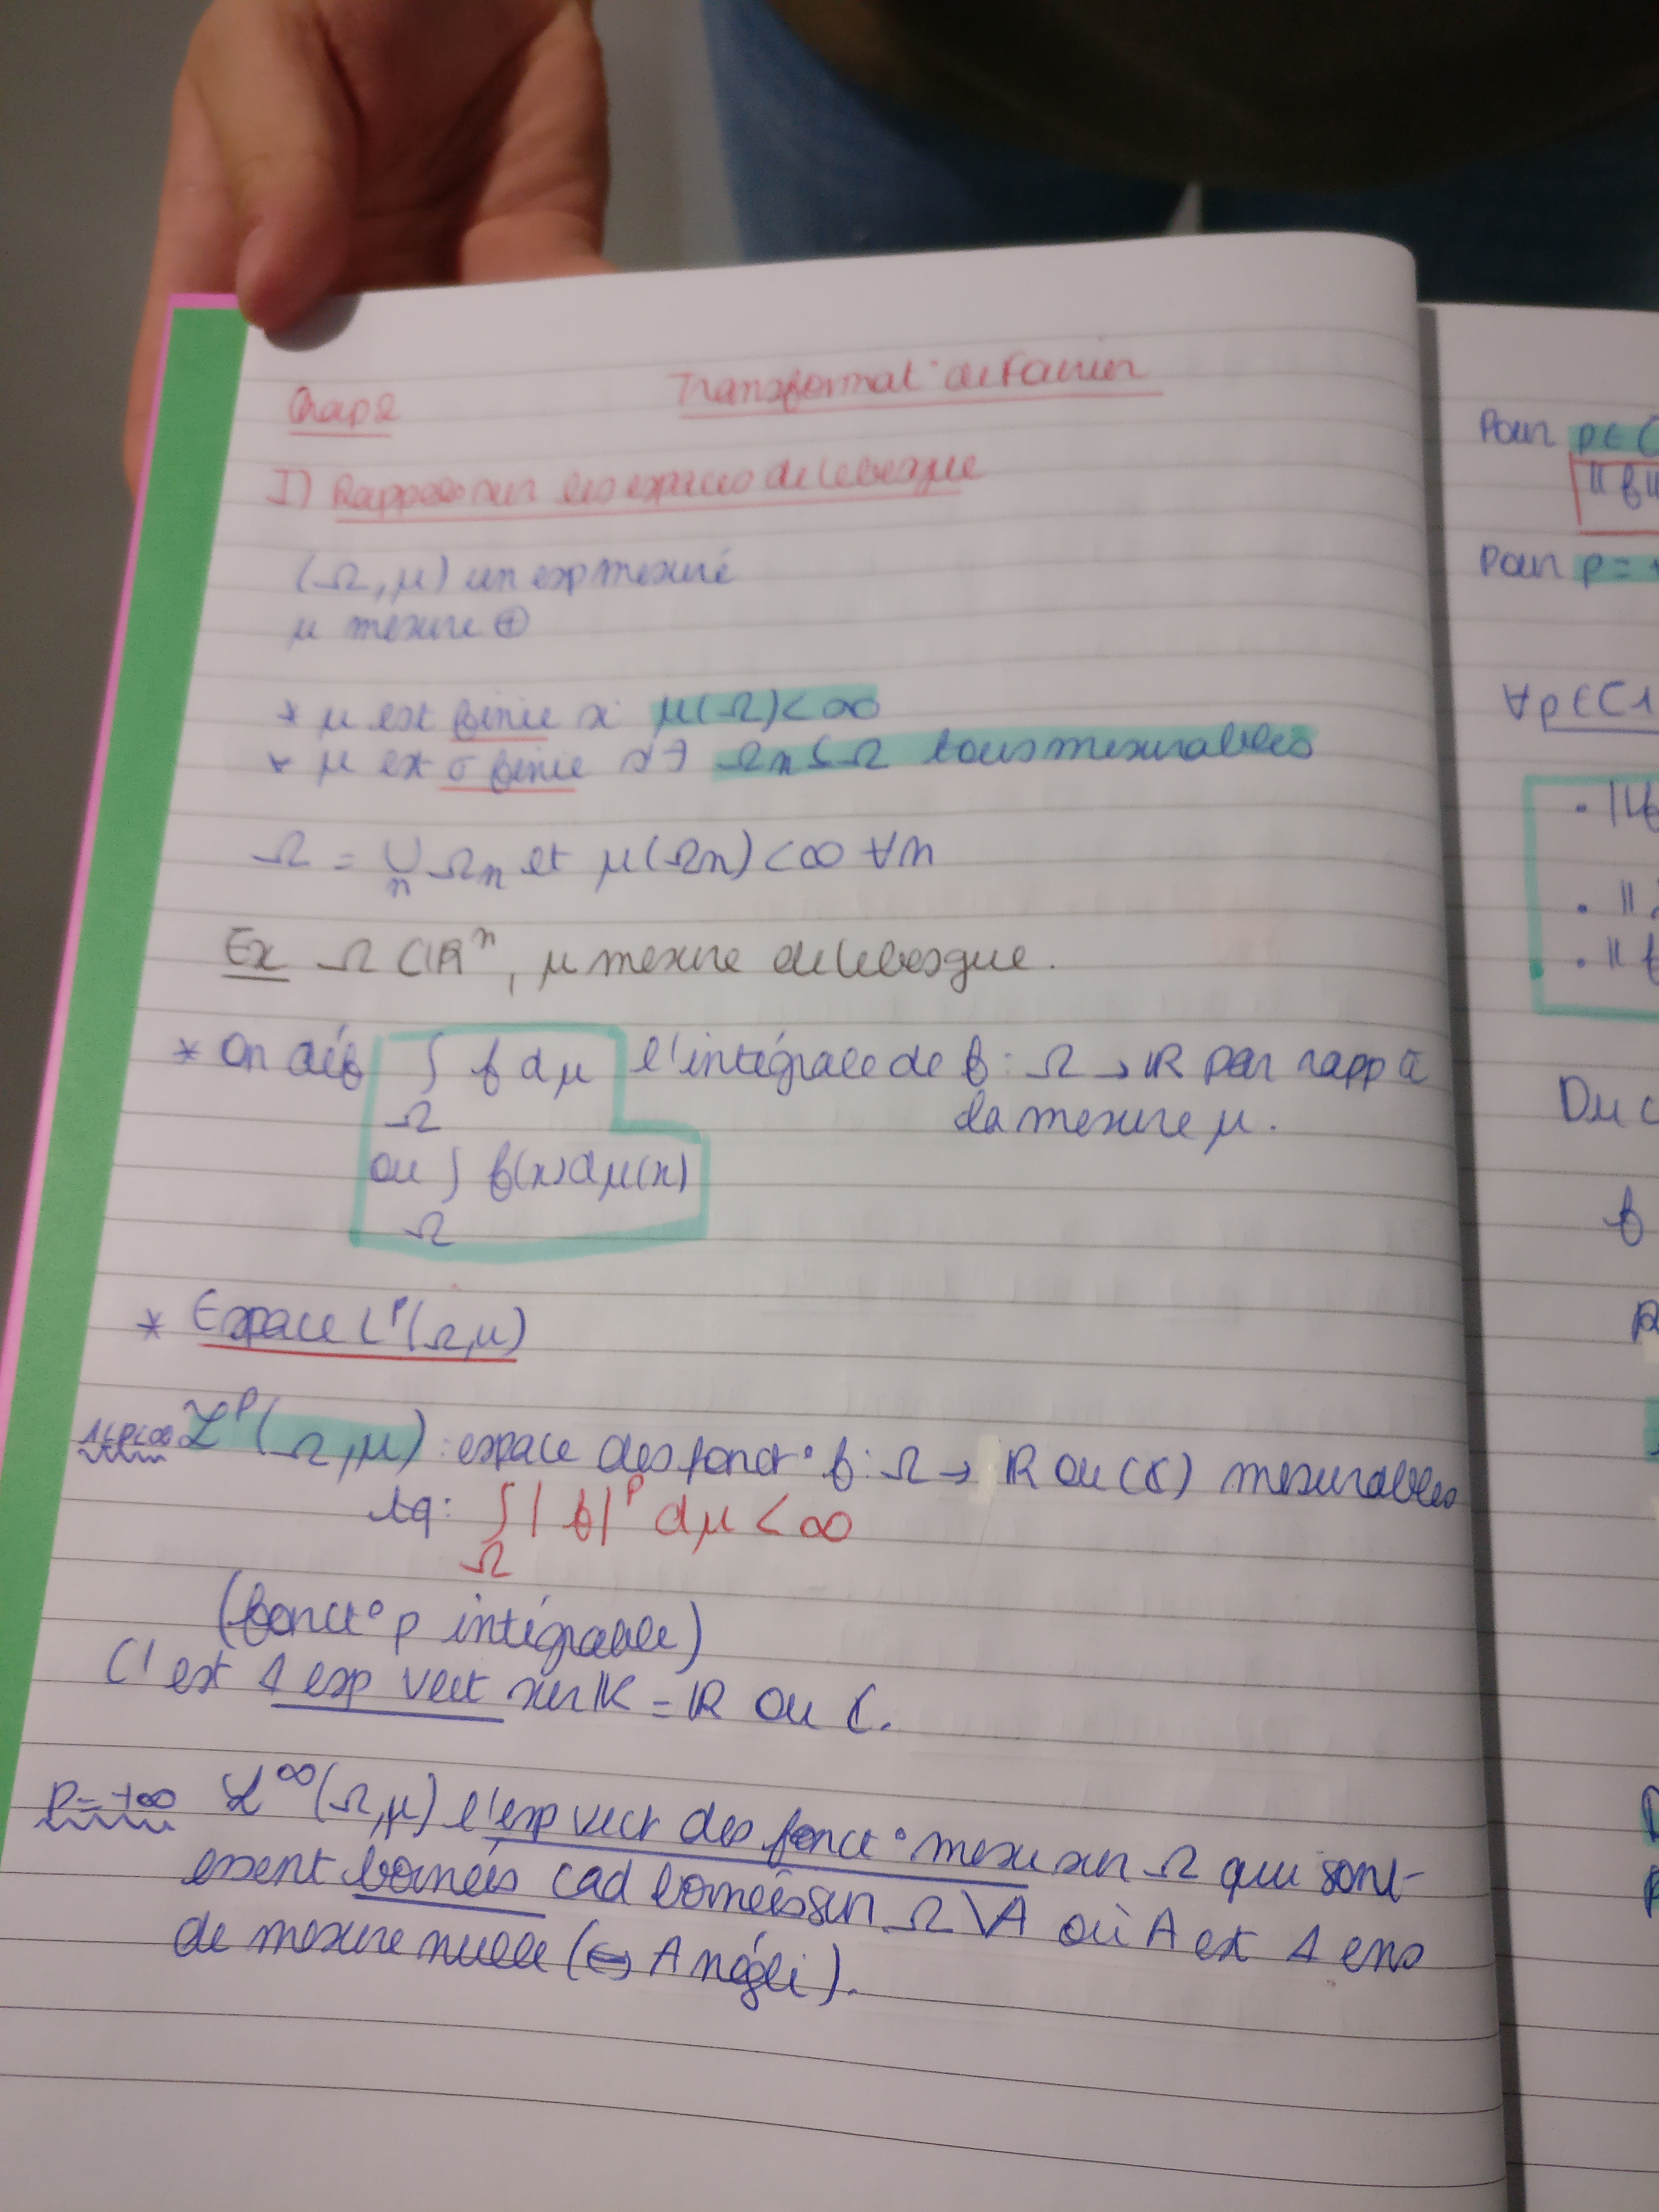 Chap 2
Transformat° de Fourier
I) Rappels sur les espaces de Lebesgue
(Ω, μ) un esp mesuré
μ mesure ⊕
* μ est finie si μ(Ω) < ∞
* μ est σ finie si ∃ Ωn ⊆ Ω tous mesurables
Ω = ∪_n Ωn et μ(Ωn) < ∞ ∀n
Ex Ω ⊂ ℝ^n, μ mesure de Lebesgue.
* On déf ∫_Ω f dμ l'intégrale de f : Ω → ℝ par rapp à
la mesure μ.
ou ∫_Ω f(x) dμ(x)
* Espace L^p(Ω, μ)
1≤p<∞ ℒ^p(Ω, μ) : espace des fonct° f : Ω → ℝ ou (ℂ) mesurables
tq : ∫_Ω |f|^p dμ < ∞
(fonct° p intégrable)
C'est 1 esp vect sur 𝕂 = ℝ ou ℂ.
p = +∞ ℒ^∞(Ω, μ) l'esp vect des fonct° mesu sur Ω qui sont
essent bornées cad bornées sur Ω \ A où A est 1 ens
de mesure nulle (⇔ A négli).
Pour p ∈ [
|| f ||
Pour p = +
∀ p ∈ [1
• || f
• ||
• || f
Du c
f